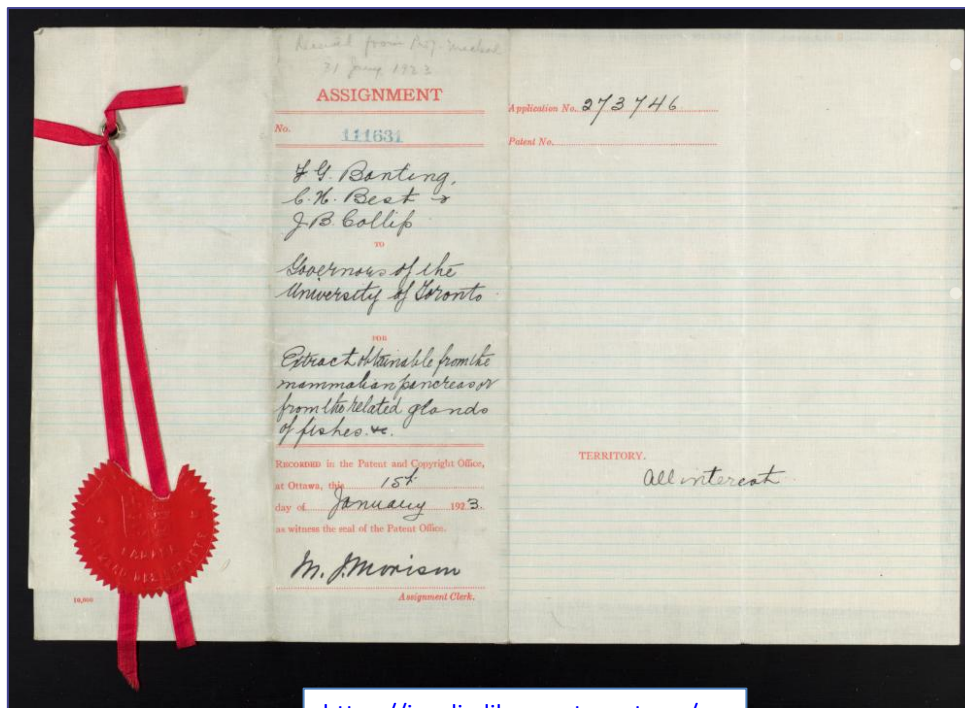 Received from Prof. Macleod
31 Jany 1923
ASSIGNMENT
No. 111631
F. G. Banting,
C. H. Best &
J. B. Collip
TO
Governors of the
University of Toronto
FOR
Extract obtainable from the
mammalian pancreas or
from the related glands
of fishes. &c.
RECORDED in the Patent and Copyright Office,
at Ottawa, this 15th
day of January 1923.
as witness the seal of the Patent Office.
M. J. Morison
Assignment Clerk.
Application No. 273746
Patent No.
TERRITORY.
All interest
CANADA
10,000